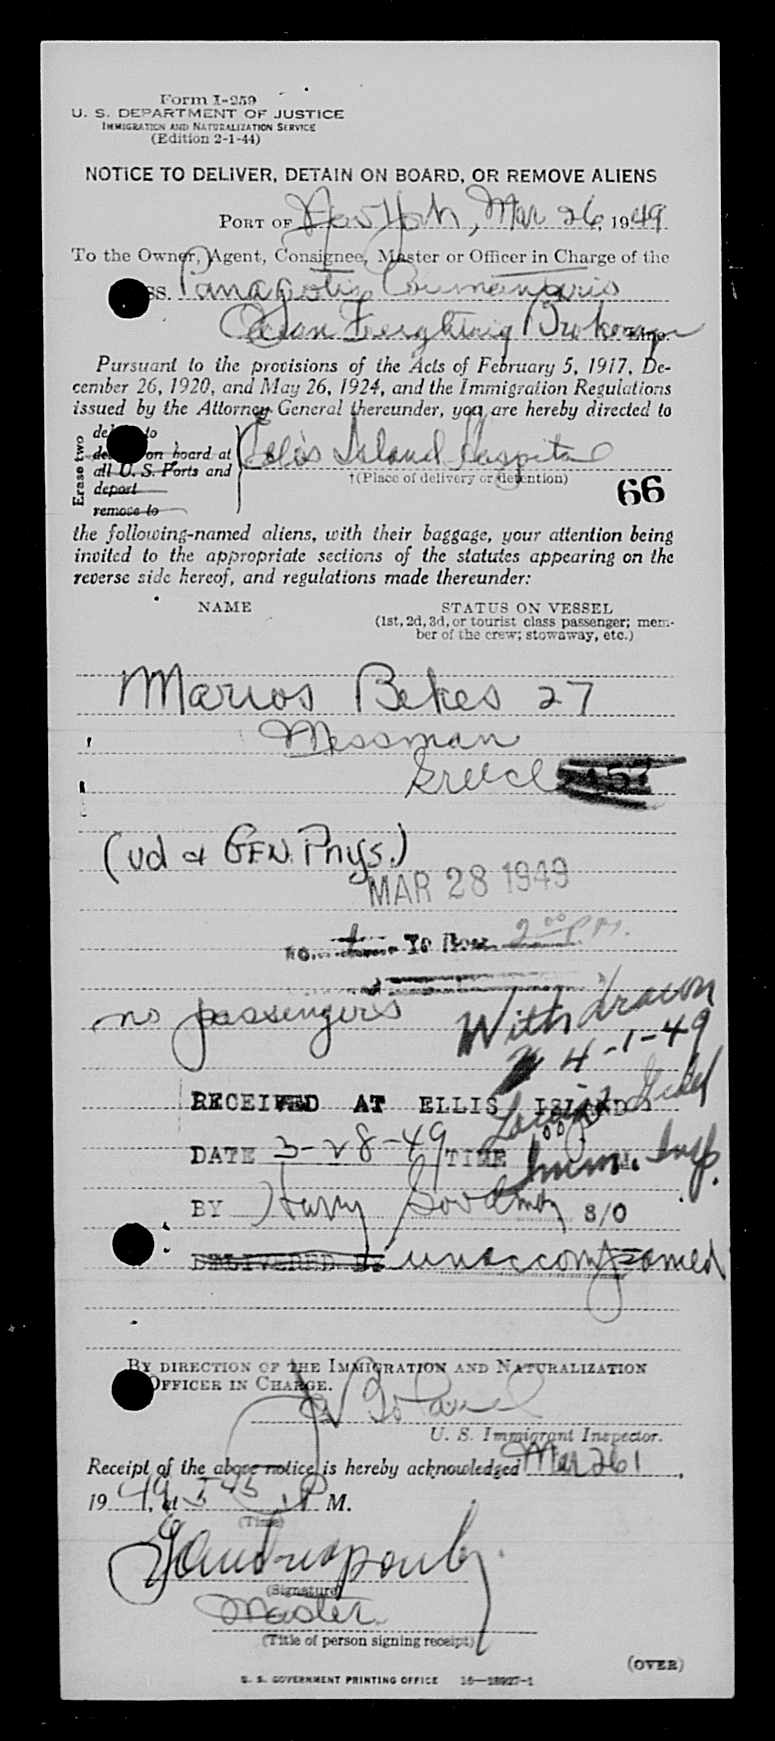 Form I-259
U. S. DEPARTMENT OF JUSTICE
IMMIGRATION AND NATURALIZATION SERVICE
(Edition 2-1-44)
NOTICE TO DELIVER, DETAIN ON BOARD, OR REMOVE ALIENS
PORT OF New York, Mar 26, 1949
To the Owner, Agent, Consignee, Master or Officer in Charge of the
SS. Panagiotis Coumantaris
Ocean Brokerage
Pursuant to the provisions of the Acts of February 5, 1917, De-
cember 26, 1920, and May 26, 1924, and the Immigration Regulations
issued by the Attorney General thereunder, you are hereby directed to
Erase two
to
on board at
all U. S. Ports and
deport
remove to
Ellis Island Hospital
†(Place of delivery or detention)
66
the following-named aliens, with their baggage, your attention being
invited to the appropriate sections of the statutes appearing on the
reverse side hereof, and regulations made thereunder:
NAME
STATUS ON VESSEL
(1st, 2d, 3d, or tourist class passenger; mem-
ber of the crew; stowaway, etc.)
Marios Bekes 27
Messman
Greece
(VD & GEN. Phys.)
MAR 28 1949
2 00 P.M.
no passengers
Withdrawn
4-1-49
RECEIVED AT ELLIS ISLAND
DATE 3-28-49 TIME
Imm. Insp.
BY Harry S/O
DELIVERED BY unaccompanied
BY DIRECTION OF THE IMMIGRATION AND NATURALIZATION
OFFICER IN CHARGE.
U. S. Immigrant Inspector.
Receipt of the above notice is hereby acknowledged Mar 26,
1949, at 5 45 P M.
(Time)
(Signature)
Master
(Title of person signing receipt)
(OVER)
U. S. GOVERNMENT PRINTING OFFICE 16—18927-1